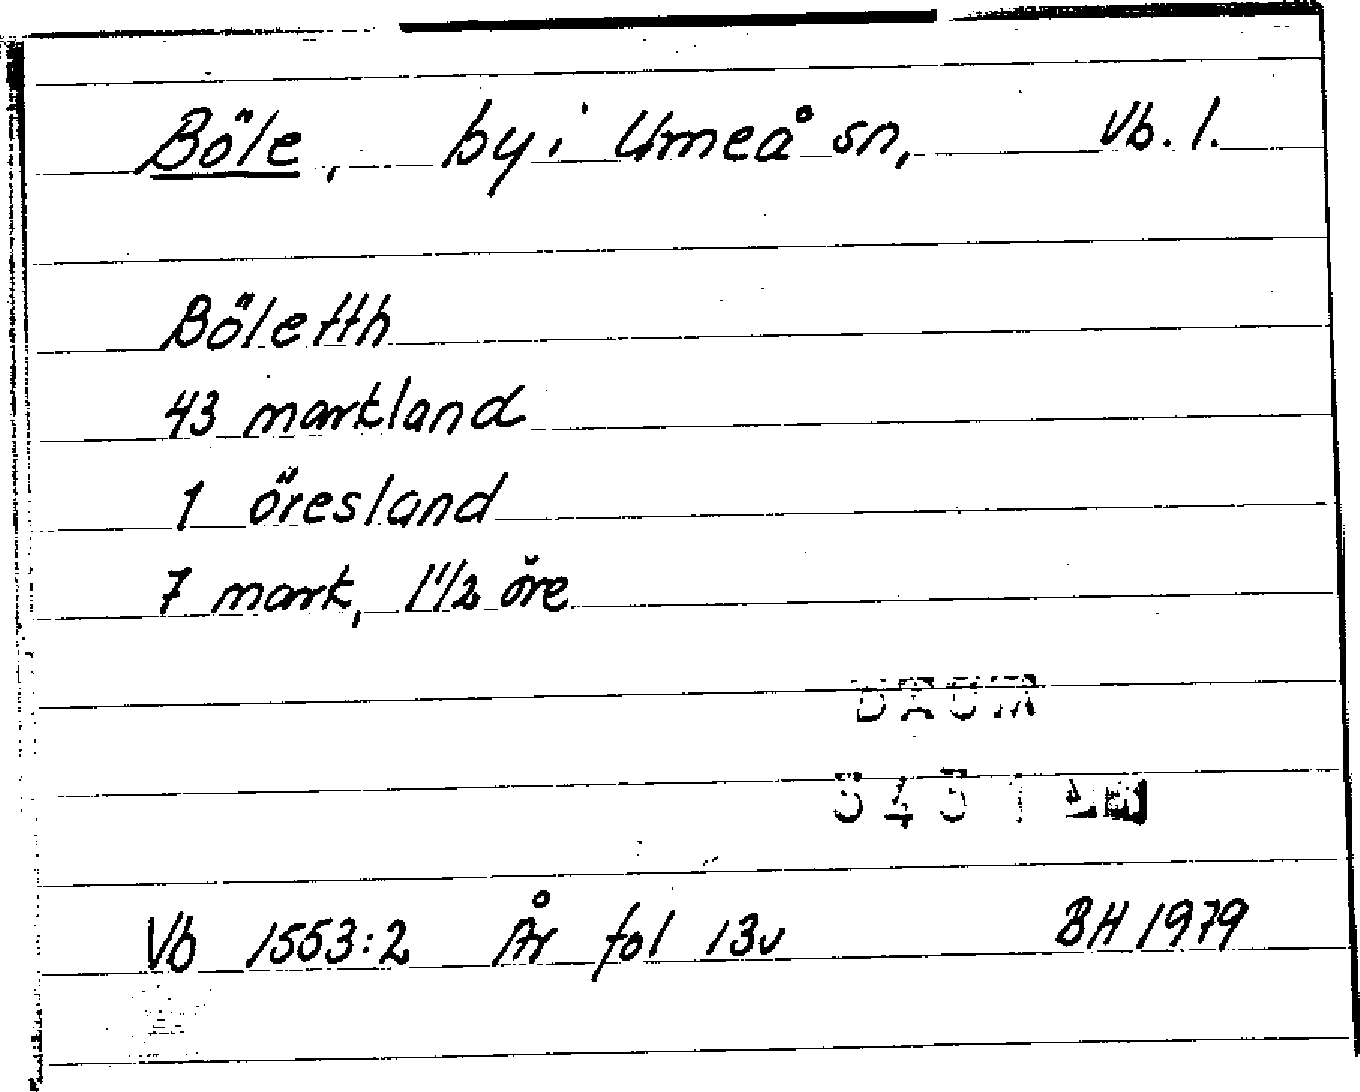 Böle, by i Umeå sn, Vb. l.
Böletth
43 markland
1 öresland
7 mark, 1 1/2 öre
Vb 1553:2 År fol 13v BH 1979